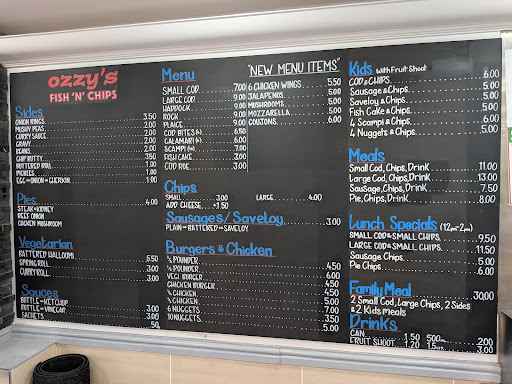 OZZY'S
FISH 'N' CHIPS
Sides
ONION RINGS 3.50
MUSHY PEAS 2.00
CURRY SAUCE 2.00
GRAVY 2.00
BEANS 2.00
CHIP BUTTY 3.50
BUTTERED ROLL 1.00
PICKLES 1.00
EGG - ONION - GHERKIN 1.00
Pies 4.00
STEAK & KIDNEY
BEEF ONION
CHICKEN MUSHROOM
Vegetarian
BATTERED HALLOUMI 5.50
SPRING ROLL 3.00
CURRY ROLL 3.00
Sauces
BOTTLE - KETCHUP 3.00
BOTTLE - VINEGAR 3.00
SACHETS 50
Menu
SMALL COD 7.00
LARGE COD 9.00
HADDOCK 9.00
ROCK 9.00
PLAICE 9.00
COD BITES 6.50
CALAMARI 6.00
SCAMPI 7.00
FISH CAKE 3.00
COD ROE 3.00
"NEW MENU ITEMS"
6 CHICKEN WINGS 5.50
JALAPENOS 5.00
MUSHROOMS 5.00
MOZZARELLA 5.00
GOUJONS 6.00
Chips
SMALL 3.00 LARGE 4.00
ADD CHEESE +1.50
Sausages/Saveloy 3.00
PLAIN - BATTERED - SAVELOY
Burgers & Chicken
¼ POUNDER 4.50
½ POUNDER 6.00
VEGI BURGER 4.50
CHICKEN BURGER 4.50
CHICKEN 4.50
CHICKEN 5.00
6 NUGGETS 3.50
10 NUGGETS 5.00
Kids with Fruit Shoot
COD & CHIPS 6.00
Sausage & Chips 5.00
Saveloy & Chips 5.00
Fish Cake & Chips 5.00
4 Scampi & Chips 6.00
4 Nuggets & Chips 5.00
Meals
Small Cod, Chips, Drink 11.00
Large Cod, Chips, Drink 13.00
Sausage, Chips, Drink 7.50
Pie, Chips, Drink 8.00
Lunch Specials (12pm-2pm)
SMALL COD & SMALL CHIPS 9.50
LARGE COD & SMALL CHIPS 11.50
Sausage Chips 5.00
Pie Chips 6.00
Family Meal 30.00
2 Small Cod, Large Chips, 2 Sides
& 2 Kids meals
Drinks
CAN 1.50 500ml 2.00
FRUIT SHOOT 1.20 1.5L 3.00